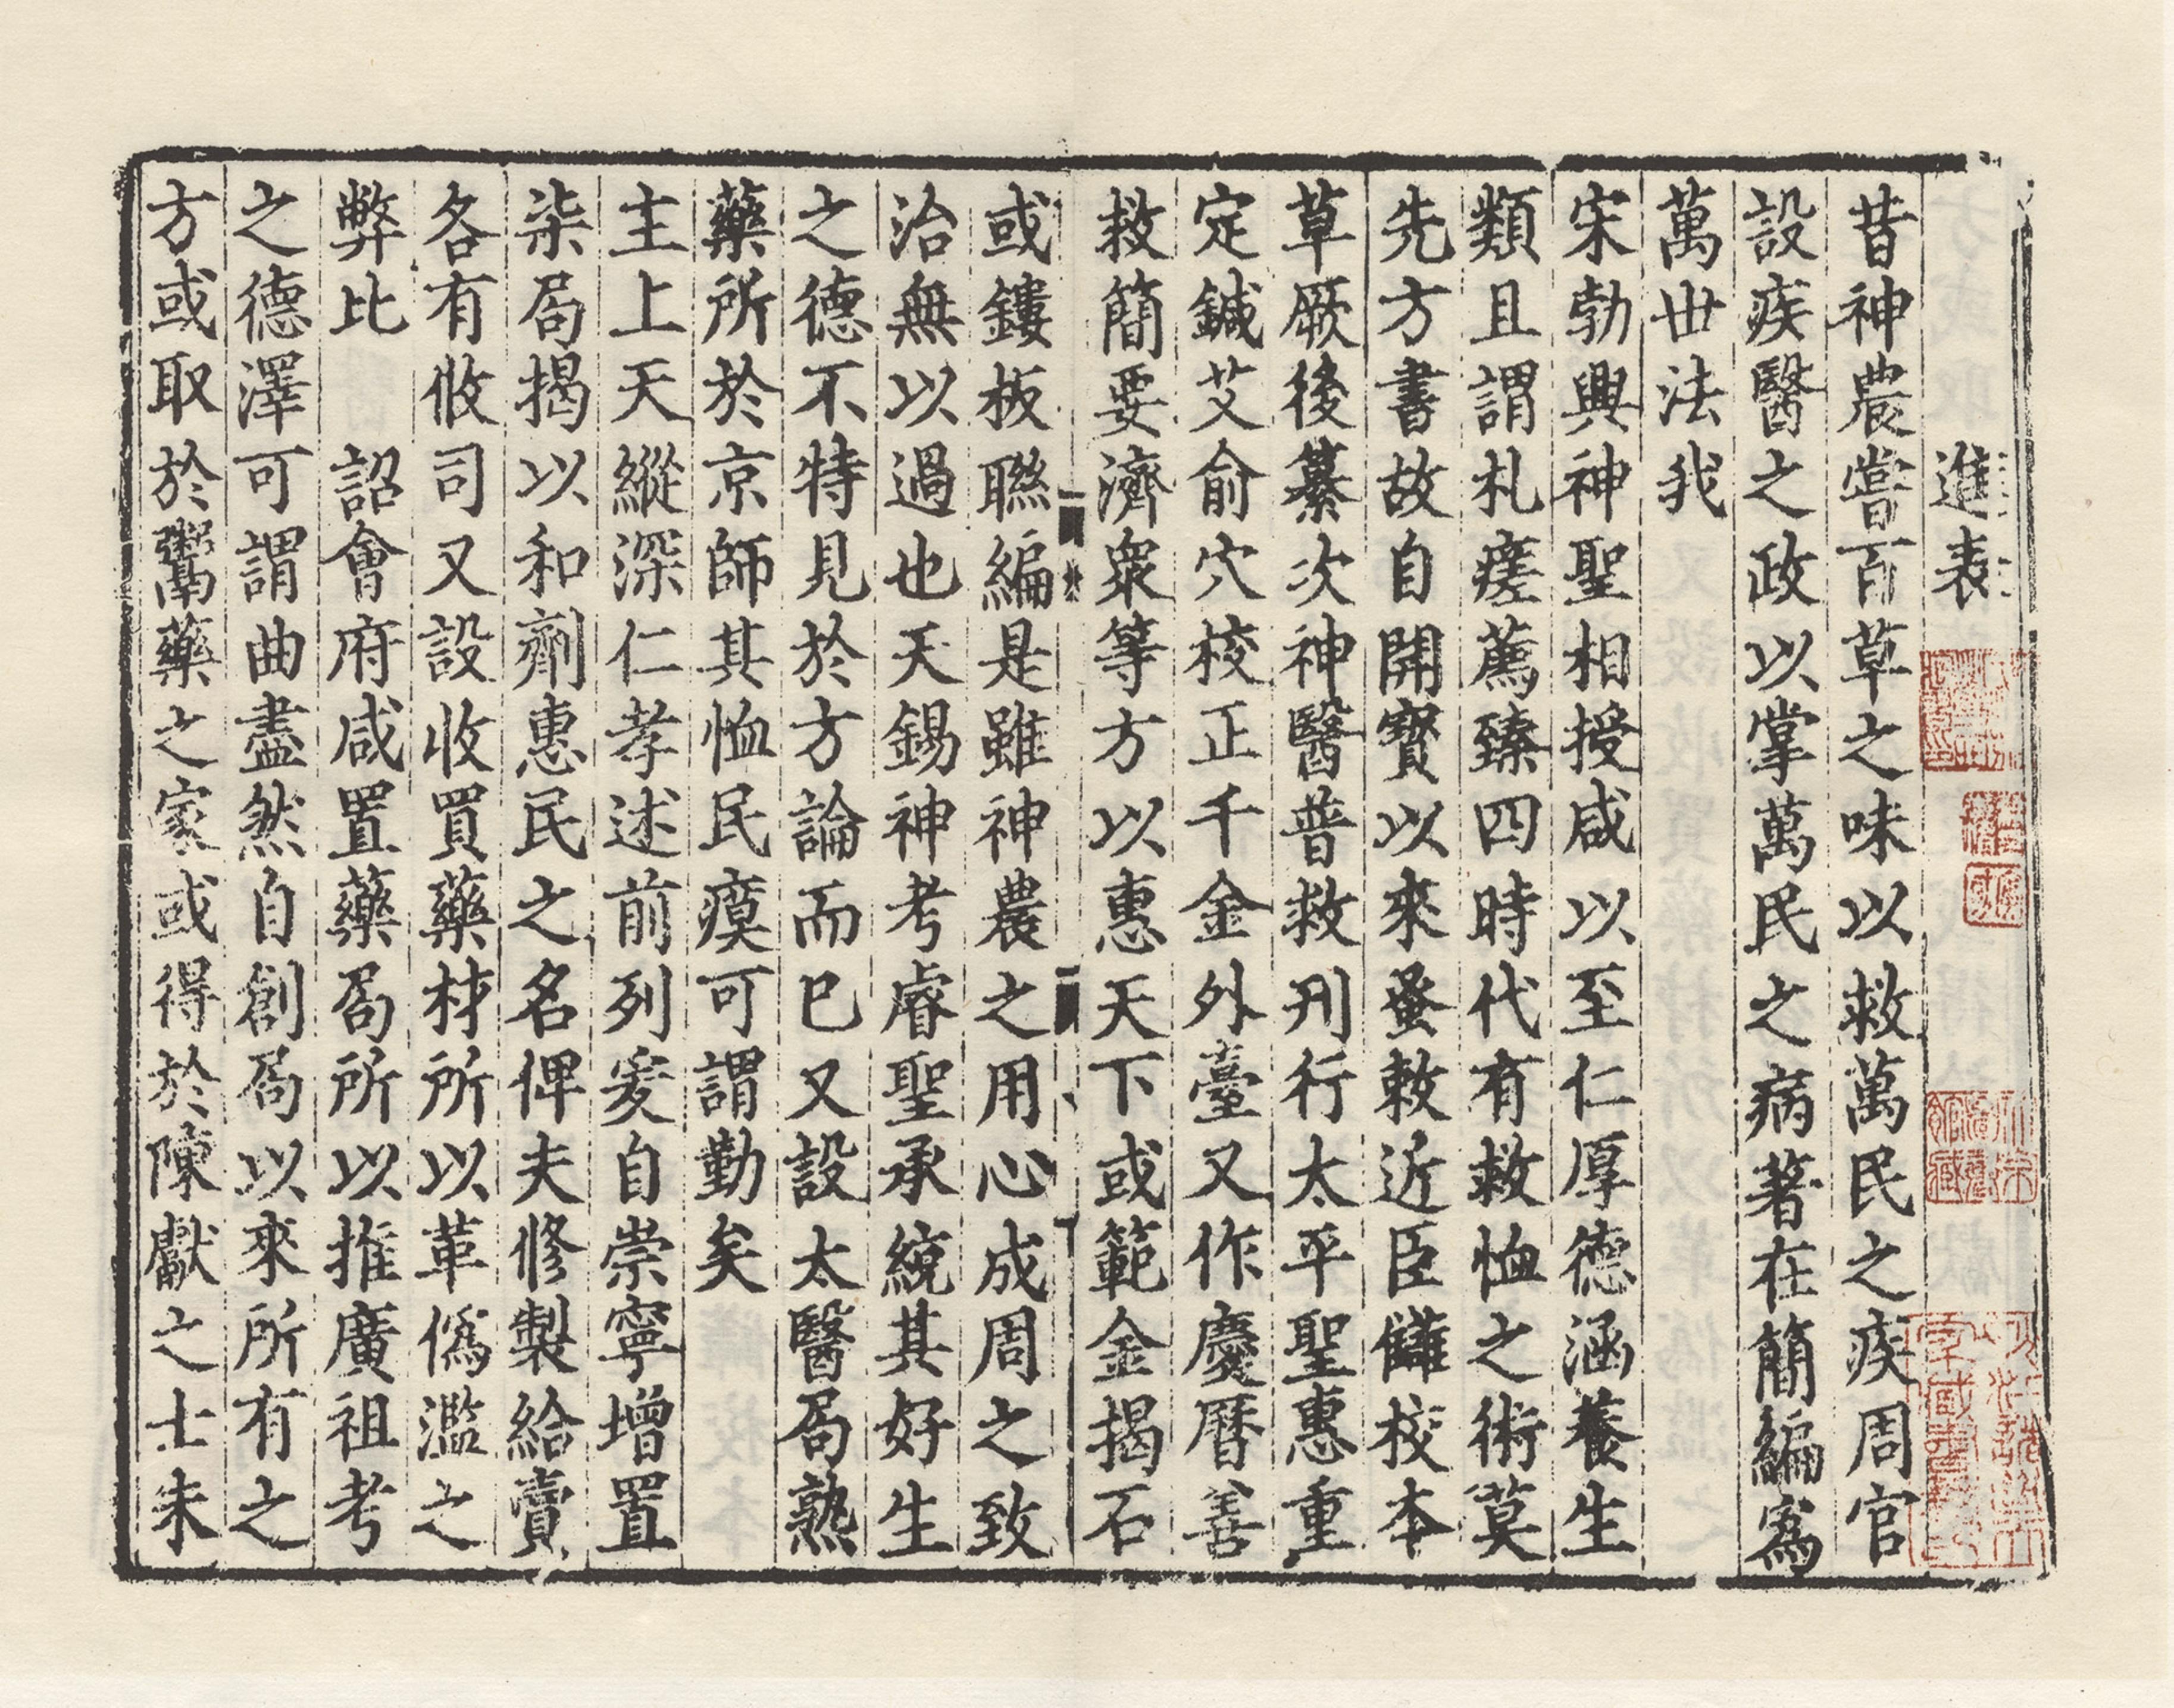 進表
昔神農嘗百草之味以救萬民之疾周官
設疾醫之政以掌萬民之病著在簡編爲
萬世法我
宋勃興神聖相授咸以至仁厚德涵養生
類且謂札瘥薦臻四時代有救恤之術莫
先方書故自開寶以來蚤敕近臣讎校本
草厥後纂次神醫普救刋行太平聖惠重
定鍼艾俞穴校正千金外臺又作慶曆善
救簡要濟衆等方以惠天下或範金揭石
或鏤板聯編是雖神農之用心成周之致
治無以過也天錫神考睿聖承統其好生
之德不特見於方論而已又設太醫局熟
藥所於京師其恤民瘼可謂勤矣
主上天縱深仁孝述前列爰自崇寧增置
柒局揭以和劑惠民之名俾夫修製給賣
各有攸司又設收買藥材所以革僞濫之
弊比　詔會府咸置藥局所以推廣祖考
之德澤可謂曲盡然自創局以來所有之
方或取於鬻藥之家或得於陳獻之士未